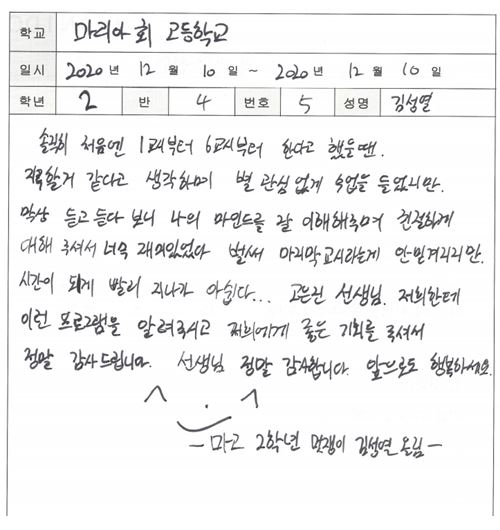 학교 마리아회 고등학교
일시 2020 년 12 월 10 일 ~ 2020 년 12 월 10 일
학년 2 반 4 번호 5 성명 김성열
솔직히 처음엔 1교시부터 6교시부터 한다고 했을땐.
지루할거 같다고 생각하며 별 관심 없게 수업을 들었지만.
막상 듣고 듣다 보니 나의 마인드를 잘 이해해주며 친절하게
대해 주셔서 너무 재미있었다 벌써 마지막교시라는게 안믿겨지지만.
시간이 되게 빨리 지나가 아쉽다... 고은린 선생님. 저희한테
이런 프로그램을 알려주시고 저희에게 좋은 기회를 주셔서
정말 감사드립니다. 선생님 정말 감사합니다. 앞으로도 행복하세요.
^ . ^
- 마고 2학년 멋쟁이 김성열 올림 -